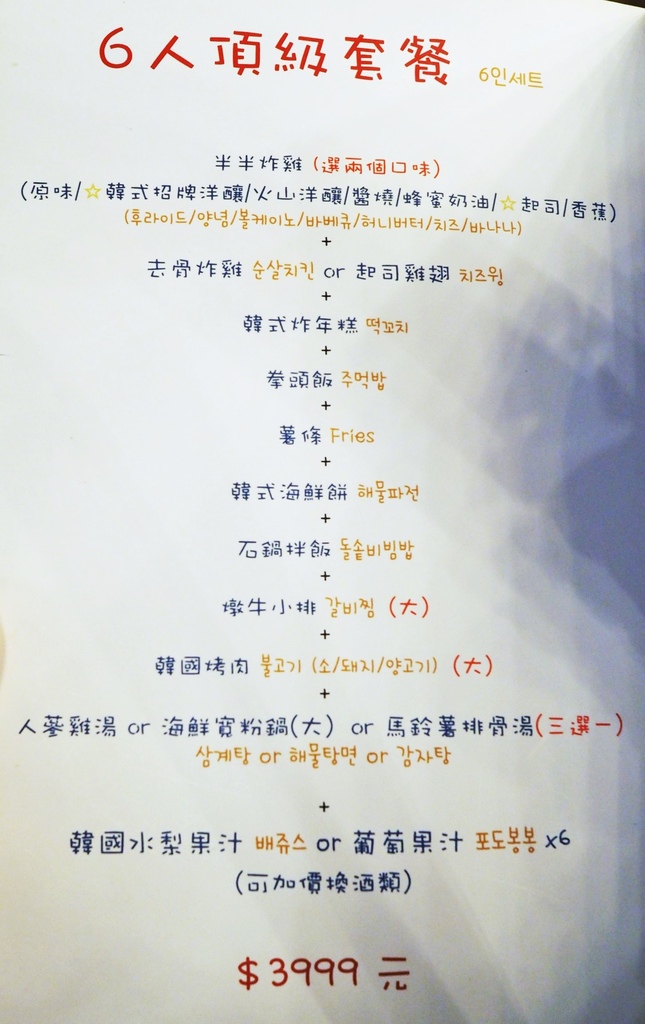 6人頂級套餐 6인세트
半半炸雞 (選兩個口味)
(原味/☆韓式招牌洋釀/火山洋釀/醬燒/蜂蜜奶油/☆起司/香蕉)
(후라이드/양념/볼케이노/바베큐/허니버터/치즈/바나나)
+
去骨炸雞 순살치킨 or 起司雞翅 치즈윙
+
韓式炸年糕 떡꼬치
+
拳頭飯 주먹밥
+
薯條 Fries
+
韓式海鮮餅 해물파전
+
石鍋拌飯 돌솥비빔밥
+
燉牛小排 갈비찜 (大)
+
韓國烤肉 불고기 (소/돼지/양고기) (大)
+
人蔘雞湯 or 海鮮寬粉鍋(大) or 馬鈴薯排骨湯(三選一)
삼계탕 or 해물탕면 or 감자탕
+
韓國水梨果汁 배쥬스 or 葡萄果汁 포도봉봉 x6
(可加價換酒類)
$3999 元